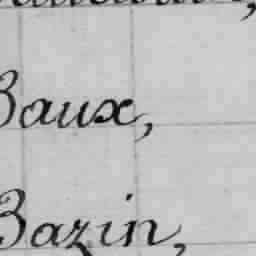 Baux,
Bazin,